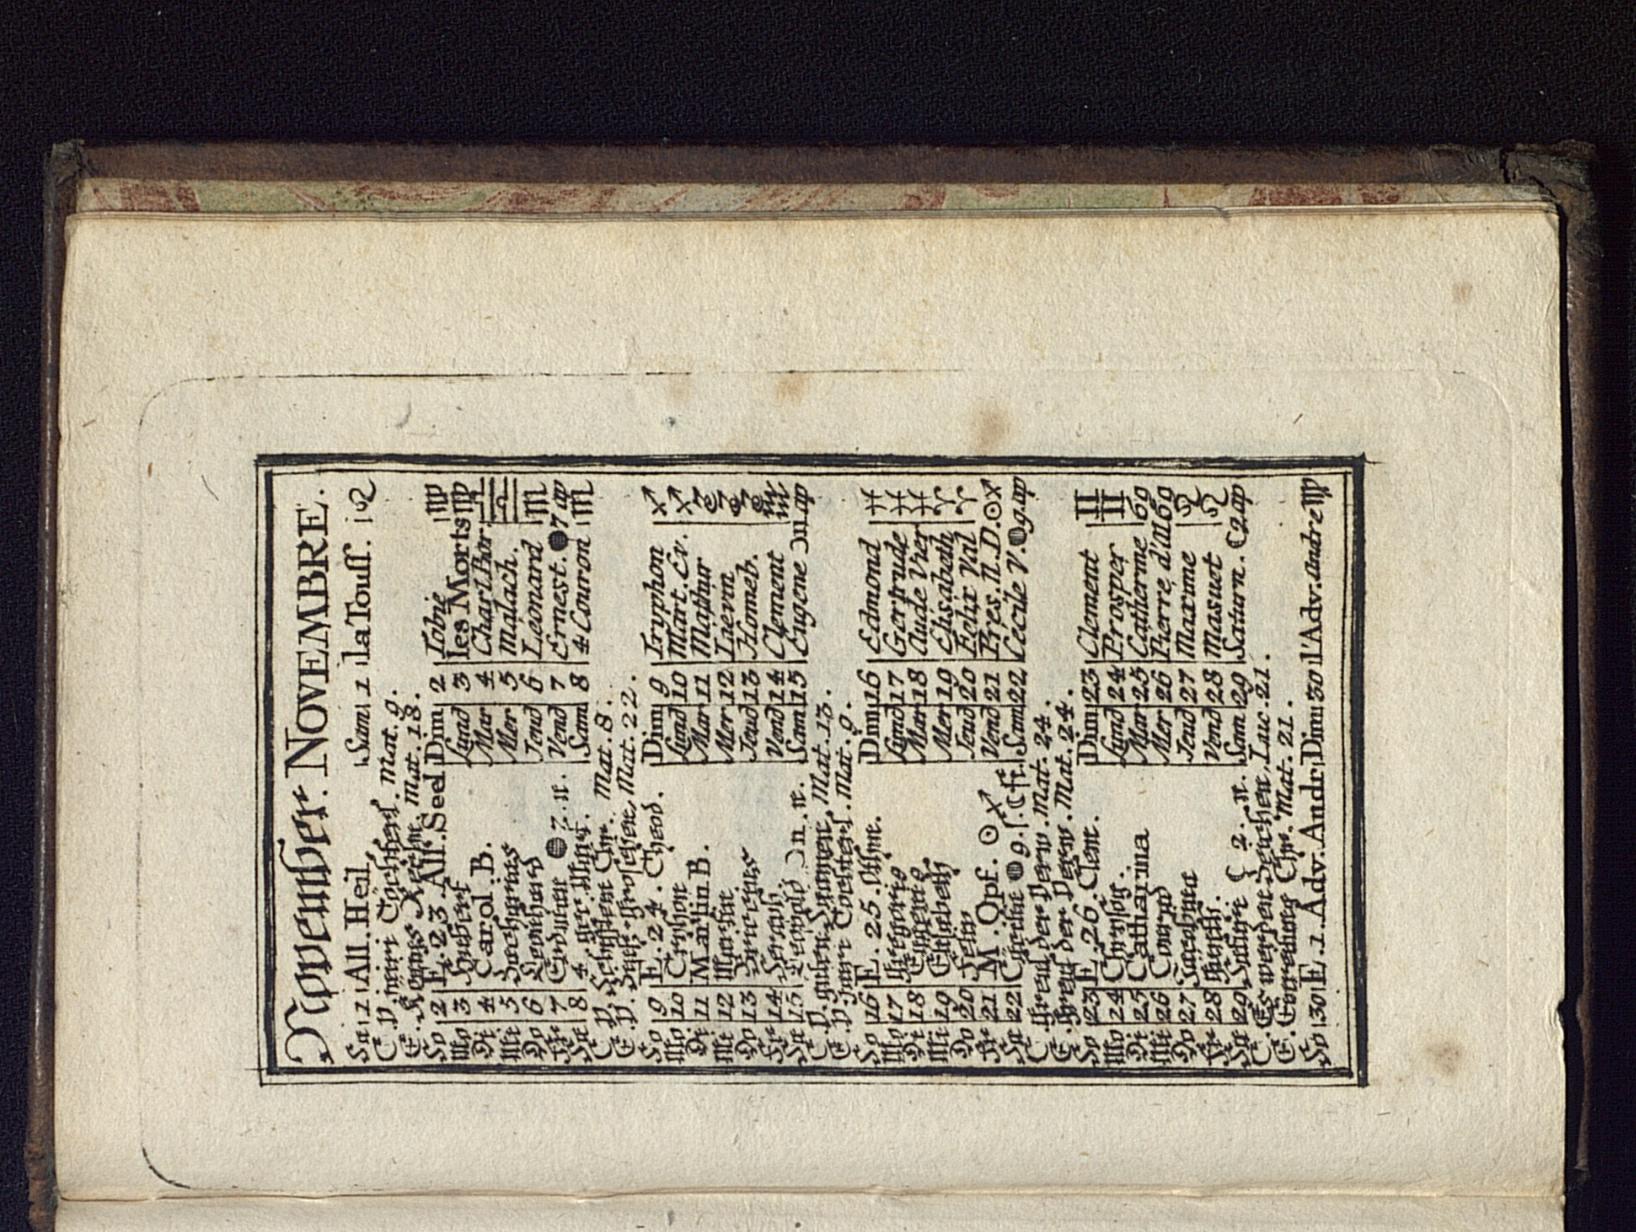 November. NOVEMBRE.
Sa 1 All. Heil. Sam 1 la Touss. ♌
C. V. Jairi Töchterl. Mat. 9.
E. Königs Rechn. Mat. 18.
So 2 E. 23. All. Seel Dim 2 Tobie ♍
Mo 3 Hubert Lund 3 les Morts ♍
Di 4 Carol. B. Mar 4 Charl. Bor ♎
Mi 5 Zacharias Mer 5 Malach. ♎
Do 6 Leonhard Jeud 6 Léonard ♏
Fr 7 Erdman ● 7. n. Vend 7 Ernest. ● 7 ap
Sa 8 4. ger. Sam 8 4 Couron ♏
C. V. Schifflein Chr. Mat. 8.
E. V. Mat. 22.
So 9 E. 24. Theod. Dim 9 Tryphon ♐
Mo 10 Triphon Lund 10 Mart. Ev. ♐
Di 11 Martin B. Mar 11 Mathur ♑
Mi 12 Mer 12 ♑
Do 13 Jeud 13 Homeb. ♑
Fr 14 Vend 14 Clement ♒
Sa 15 Leopold ☽ n. n. Sam 15 Eugene ☽ ap
C. V. guten Saamen, Mat. 13.
E. V. Jairi Töchterl. Mat. 9.
So 16 E. 25. Dim 16 Edmond ♓
Mo 17 Gregorius Lund 17 Gertrude ♓
Di 18 Mar 18 Aude Vier ♓
Mi 19 Elisabeth Mer 19 Elisabeth ♈
Do 20 Jeud 20 Felix Val ♈
Fr 21 M. Opf. ☉ ♐ Vend 21 Pres. N. D. ☉ ♐
Sa 22 Sam 22 Cecile V. 9. ap
C. Greul der Verw. Mat. 24.
E. Greul der Verw. Mat. 24.
So 23 E. 26. Clem. Dim 23 Clement ♊
Mo 24 Chrysog. Lund 24 Prosper ♊
Di 25 Catharina Mar 25 Catherine ♋
Mi 26 Conrad Mer 26 Pierre d'All ♋
Do 27 Jeud 27 Maxime ♌
Fr 28 Vend 28 Masuot ♌
Sa 29 ☾ 2. n. Sam 29 Saturn. ☾ 2 ap
C. Es werden Zeichen, Luc. 21.
E. Chr. Mat. 21.
So 30 E. 1. Adv. Andr Dim 30 l'Adv. andre ♍